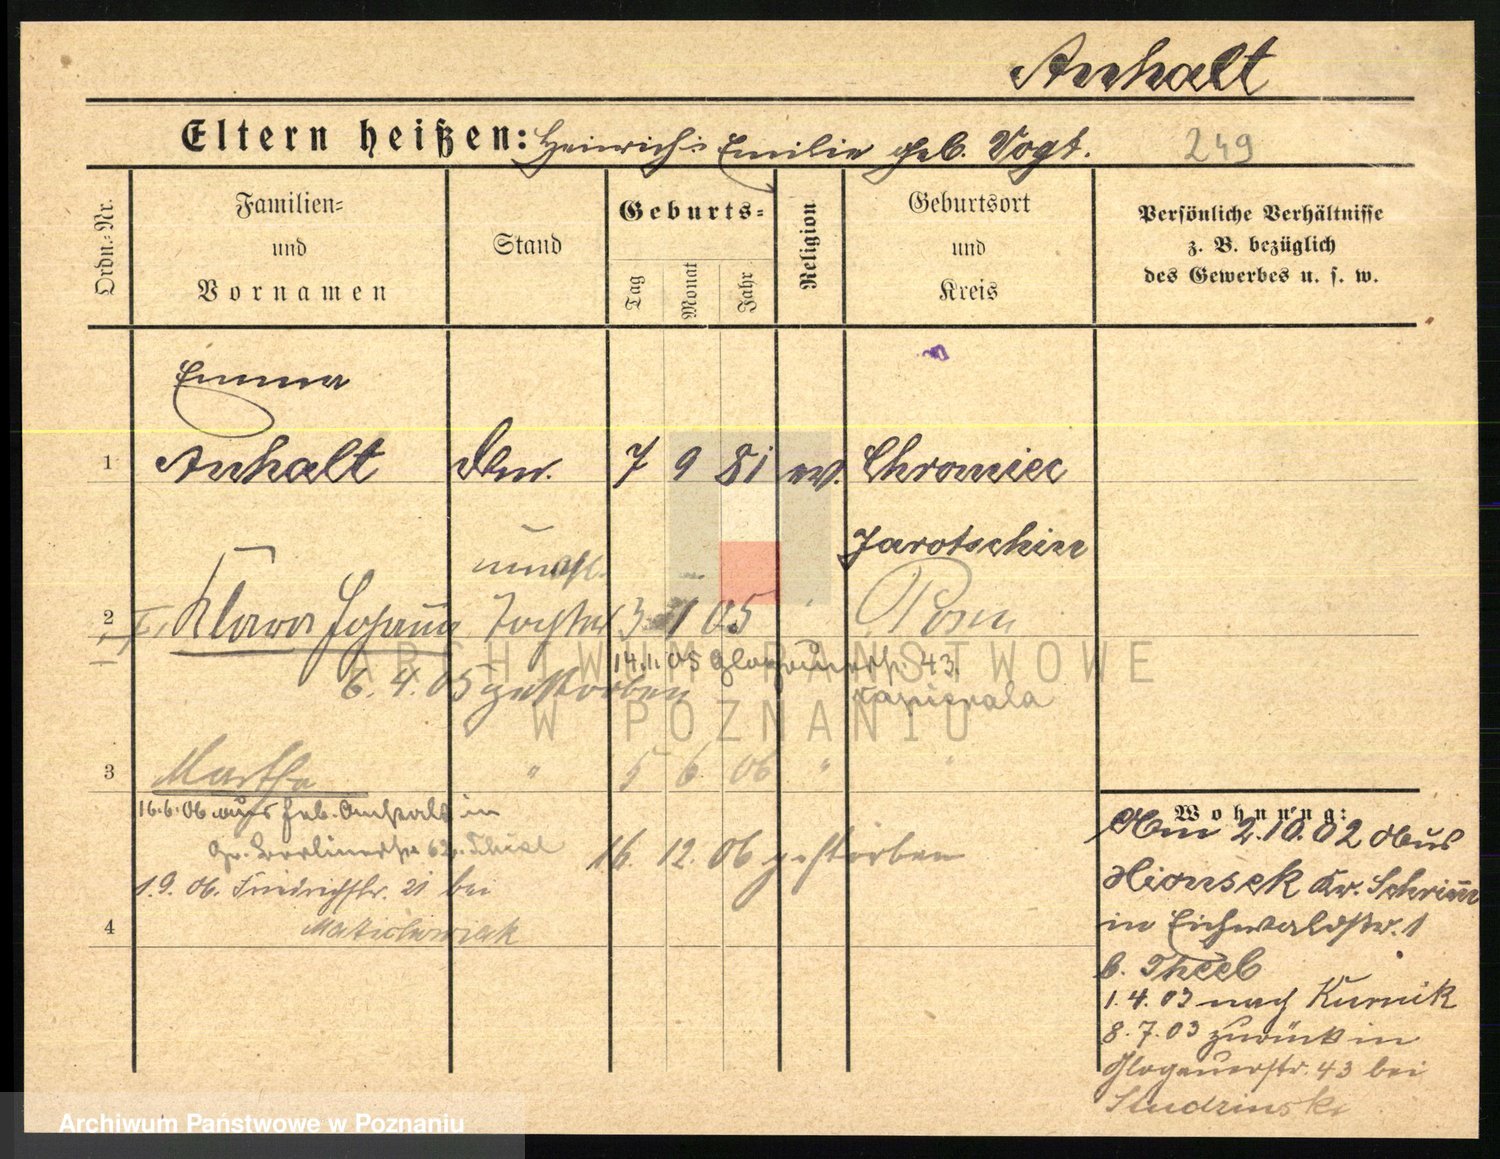 Anhalt
Eltern heißen: Heinrich u. Emilie geb. Vogt.
249
Ordn.-Nr.
Familien-
und
Vornamen
Stand
Geburts-
Tag
Monat
Jahr
Religion
Geburtsort
und
Kreis
Persönliche Verhältnisse
z. B. bezüglich
des Gewerbes u. s. w.
Emma
1 Anhalt 7 9 81 ev. Chromiec
Jarotschin
unehl.
2 Klara Johanna Tochter 3 1 05 Posen
14.1.05 Glogauerstr. 43.
6.4.05 gestorben
3 Martha " 5 6 06 " "
16.6.06 aus Heb. Anstalt in
Gr. Berlinerstr. 62
16. 12. 06 gestorben
1.9.06. Friedrichstr. 21 bei
4
Wohnung:
Am 2.10.02 aus
Hionsek Kr. Schrimm
in Eichwaldstr. 1
b. Theeb
1.4.03 nach Kurnik
8.7.03 zurück in
Glogauerstr. 43 bei
Studzinski
ARCHIWUM PAŃSTWOWE
W POZNANIU
Archiwum Państwowe w Poznaniu